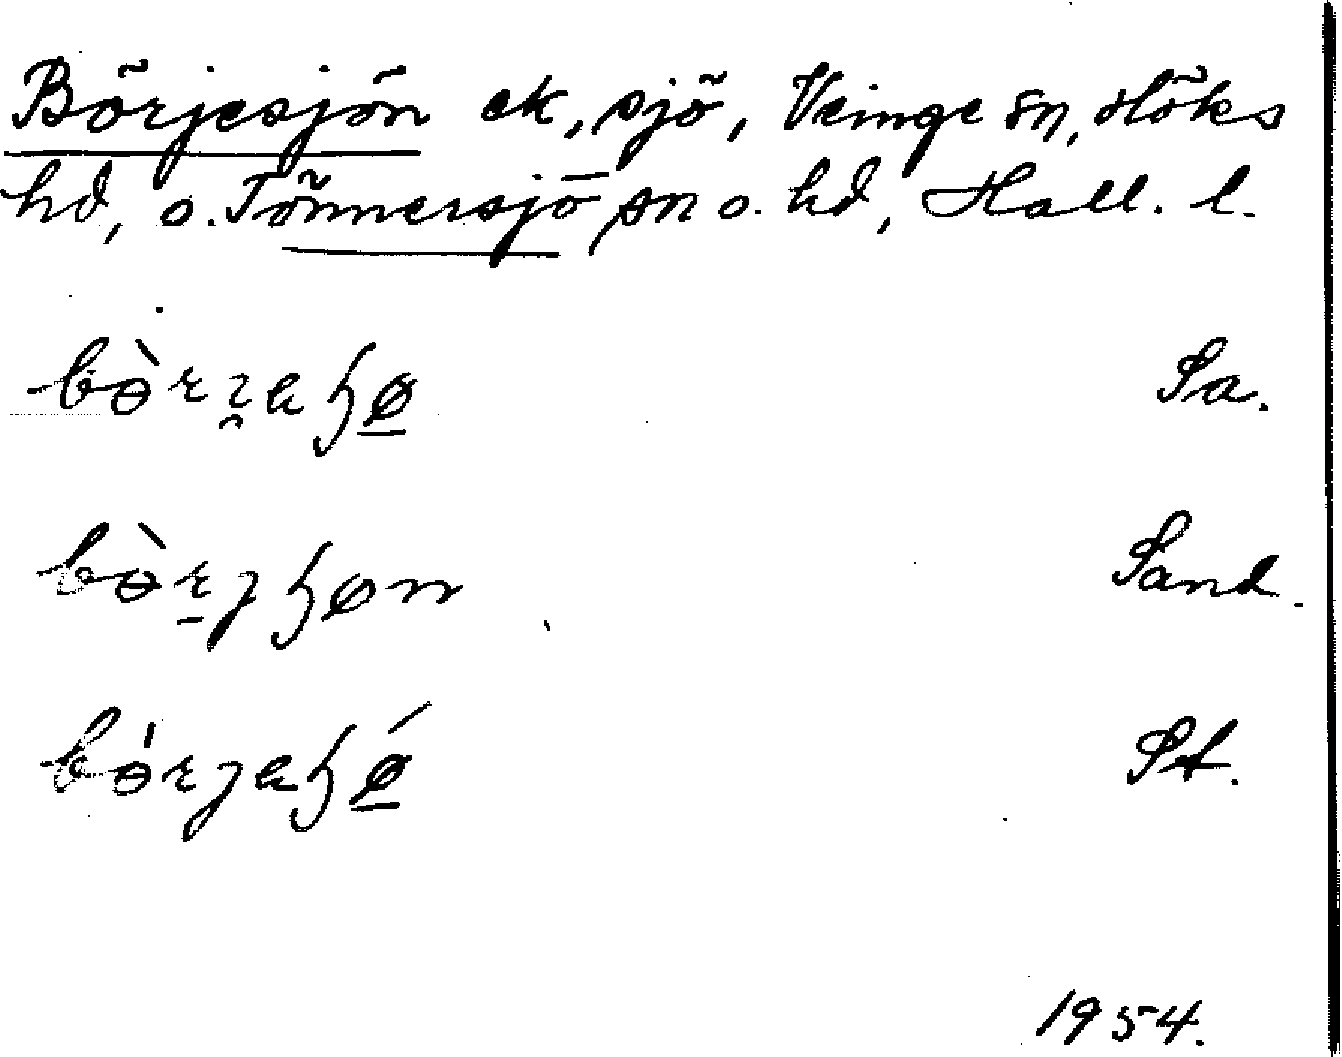 Börjesjön ek, sjö, Veinge sn, Höks
hd, o. Tönnersjö sn o. hd, Hall. l.
Sa.
Sand.
St.
1954.